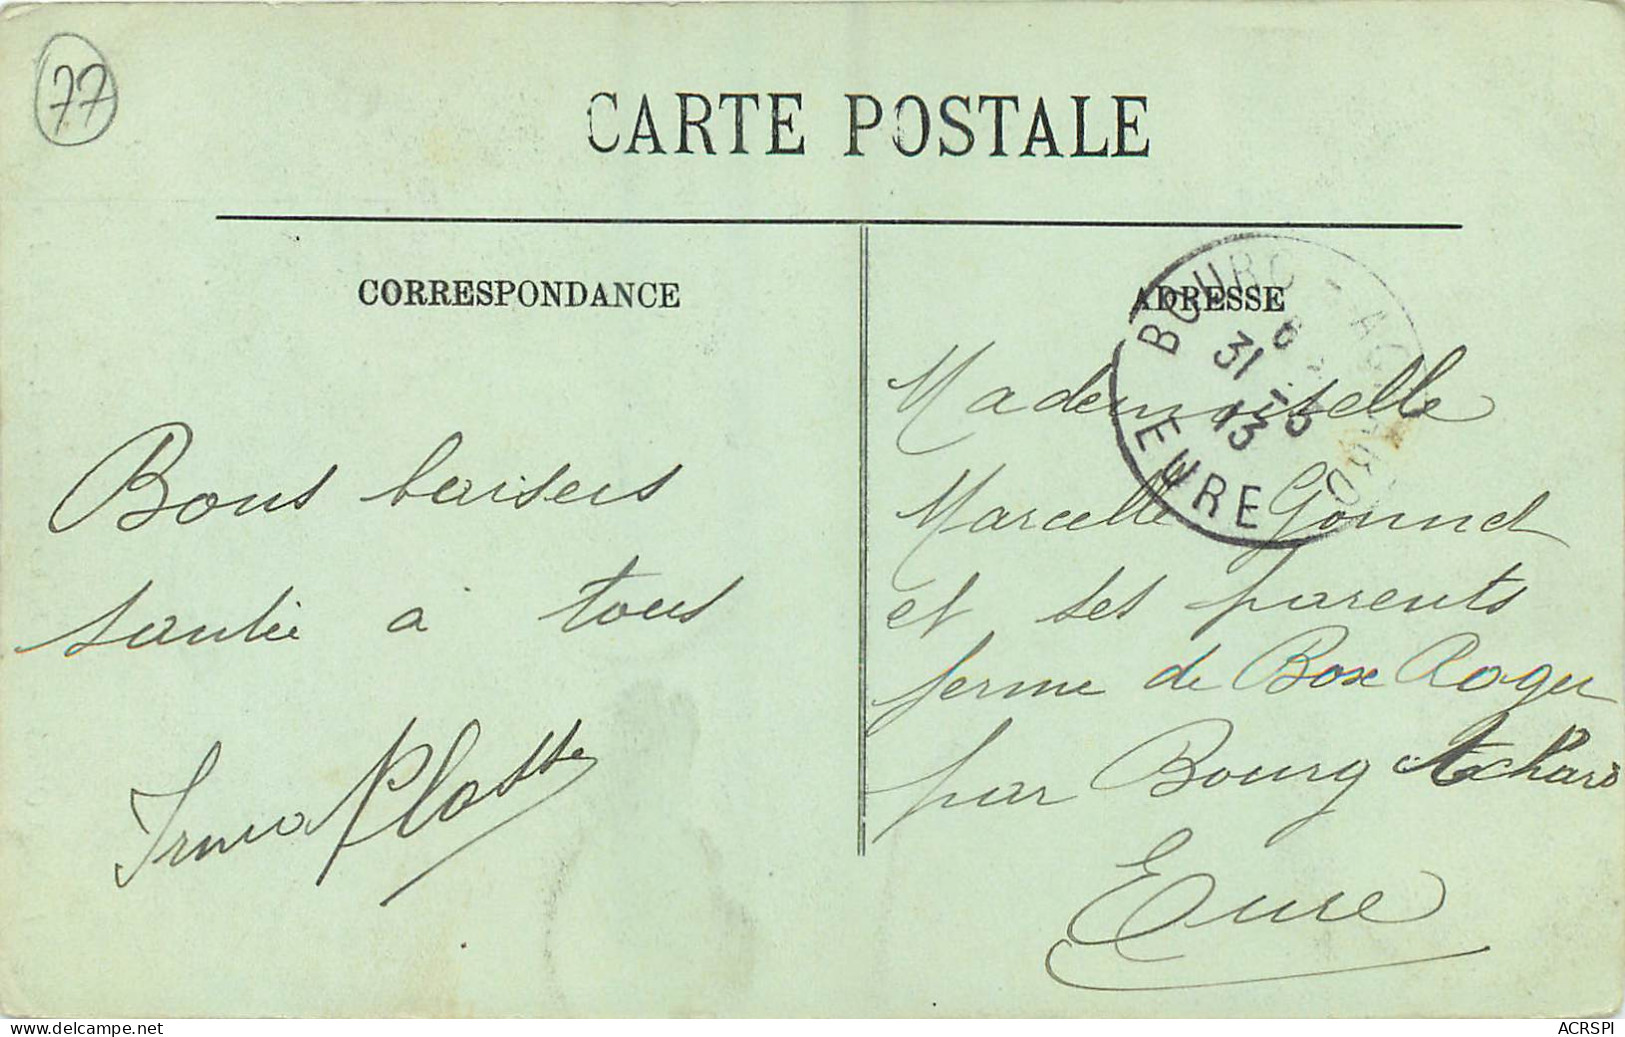 77
CARTE POSTALE
CORRESPONDANCE
Bons baisers
santée à tous
Irma
ADRESSE
BOURG-ACHARD
6
31 -5
13
EURE
Mademoiselle
Marcelle Gonnet
et ses parents
ferme de Box Roger
par Bourg Achard
Eure
www.delcampe.net
ACRSPI